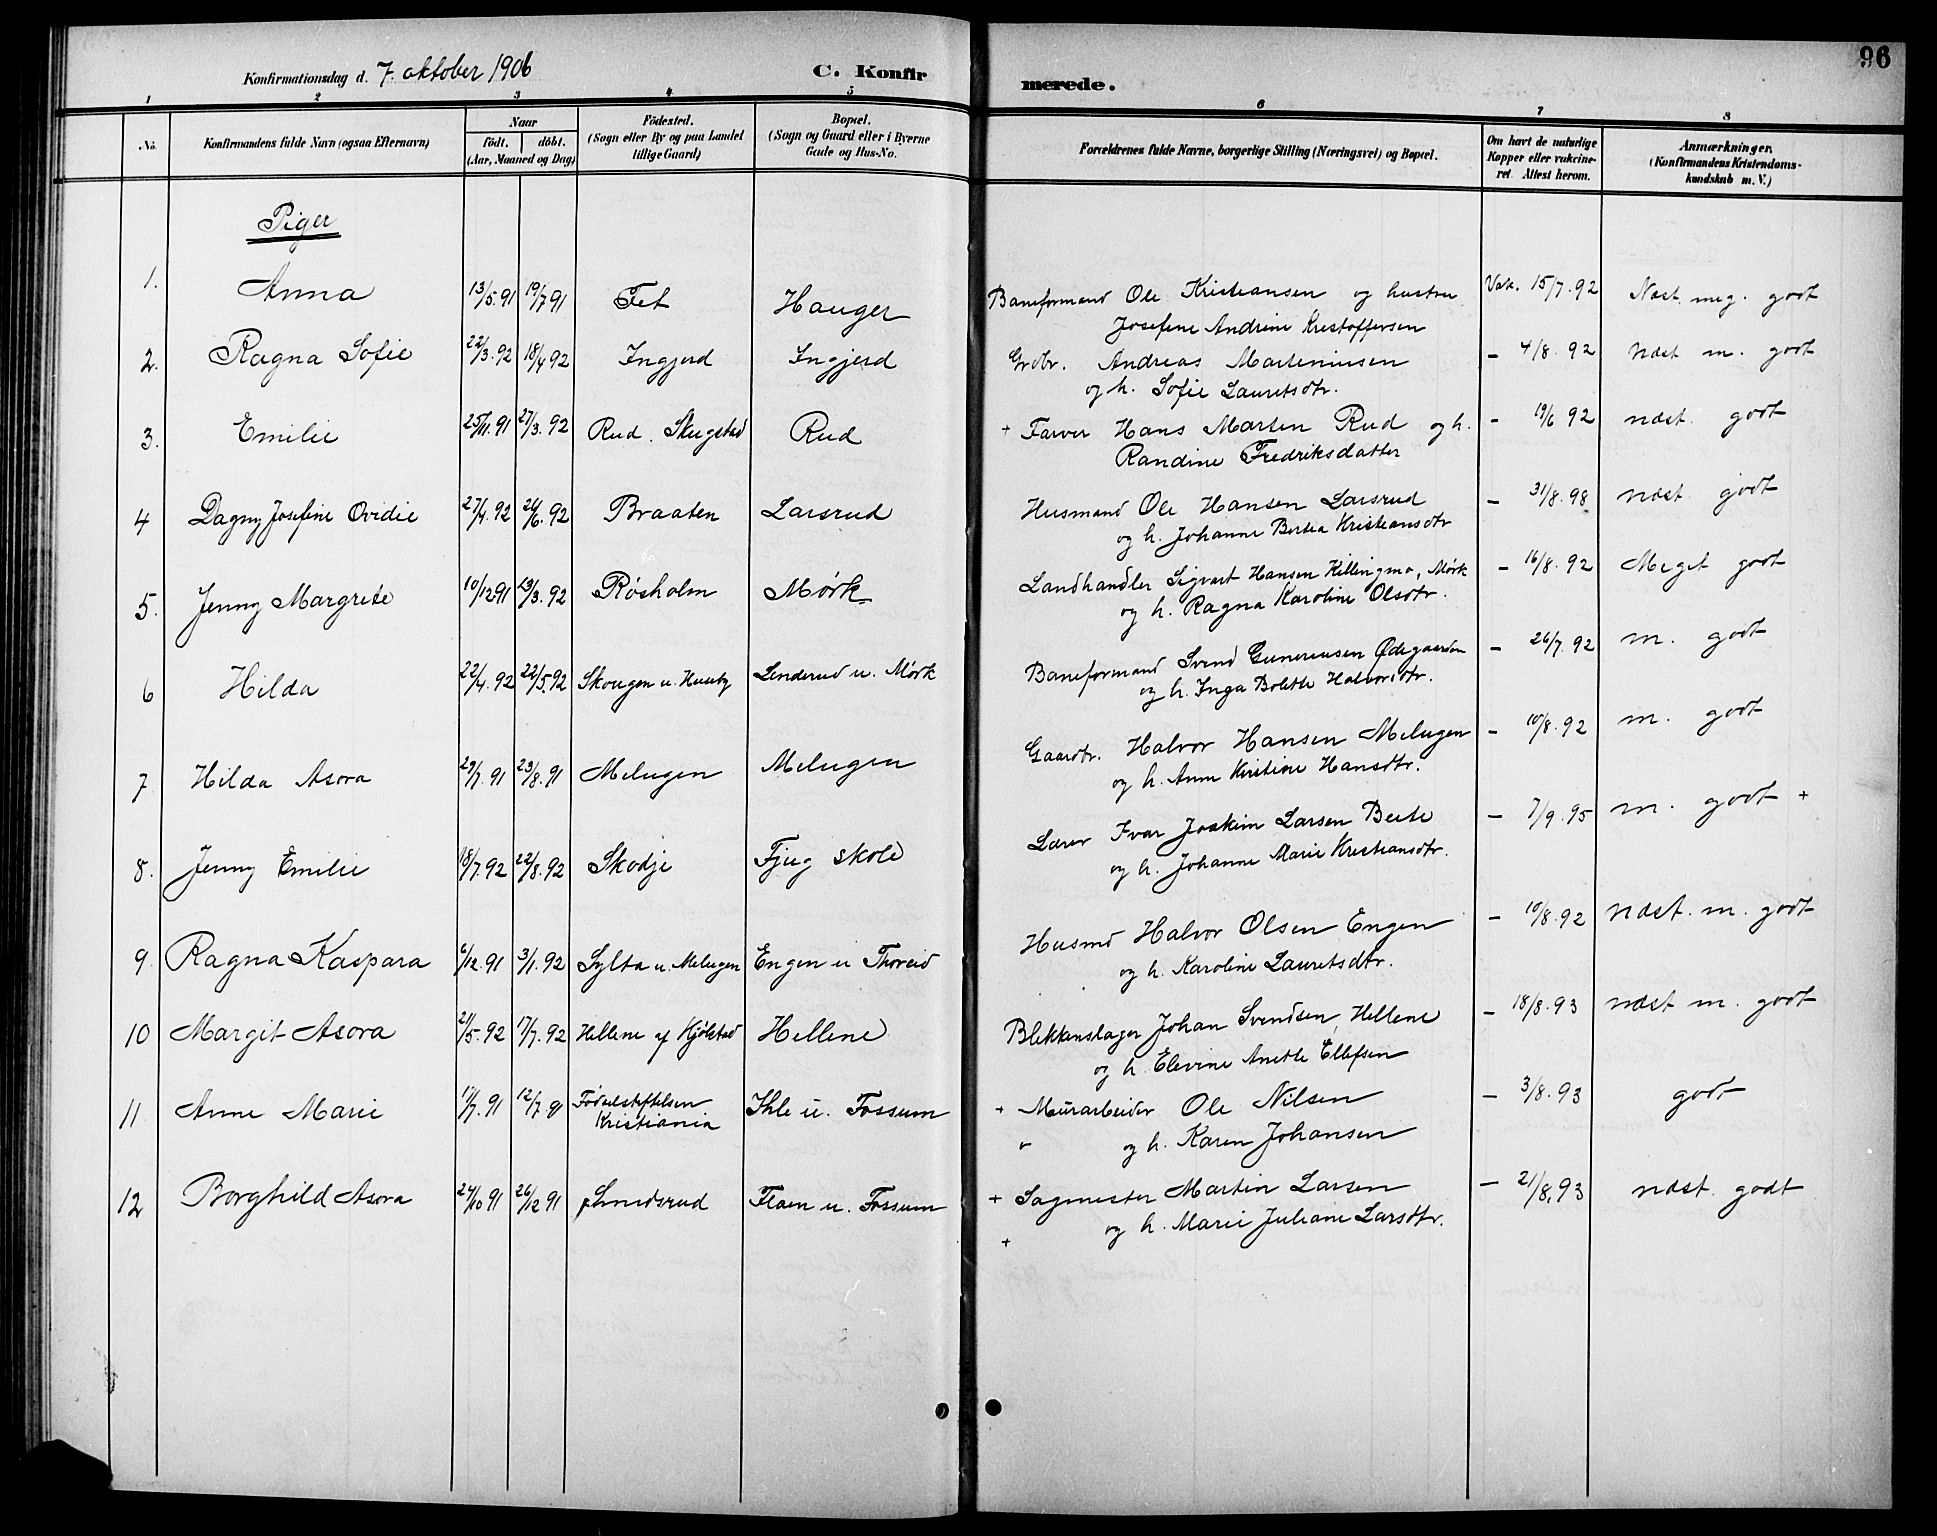 Konfirmationsdag d. 7. oktober 1906 C. Konfirmerede. 96
1 2 3 4 5 6 7 8
No. Konfirmandens fulde Navn (ogsaa Efternavn) Naar født. døbt. (Aar, Maaned og Dag) Fødested. (Sogn eller By og paa Landet tillige Gaard) Bopæl. (Sogn og Gaard eller i Byerne Gade og Hus-No. Forældrenes fulde Navne, borgerlige Stilling (Næringsvei) og Bopæl. Om havt de naturlige Kopper eller vakcineret. Attest herom. Anmærkninger. (Konfirmandens Kristendomskundskab m. V.)
Piger
1. Anna 13/5.91 19/7 91 Fet Hauger Baneformand Ole Kristiansen og hustru Vak. 15/7.92 Næst meg. godt
Josefine Andrine Kristoffersen
2. Ragna Sofie 22/3.92 18/4 92 Ingjerd Ingjerd Grdbr. Andreas Martiniusen – 4/8.92 næst m. godt
og h. Sofie Lauretsdtr.
3. Emilie 25/11.91 27/3.92 Rud. Skugstad Rud + Farver Hans Martin Rud og h. – 19/6 92 næst godt
Randine Fredriksdatter
4 Dagny Josefine Ovidie 27/4.92 26/6.92 Braaten Larsrud Husmand Ole Hansen Larsrud – 31/8.98 næst godt
og h. Johanne Bertea Kristiansdtr
5. Jenny Margrete 10/12 91 13/3.92 Røsholm Mørk Landhandler Sigvart Hansen Killingmo, Mørk – 16/8.92 Meget godt
og h. Ragna Karoline Olsdtr.
6 Hilda 22/4.92 22/5.92 Skougen u. Huseby Lenderud u. Mørk Baneformand Svend Gunerius​en Ødegaarden – 26/7.92 m. godt
og h. Inga Bolette Halvorsdtr.
7 Hilda Asora 29/7.91 23/8.91 Melugen Melugen Gaardbr. Halvor Hansen Melugen – 10/8.92 m. godt
og h. Anne Kirstine Hansdtr.
8. Jenny Emilie 18/7.92 22/8.92 Skodje Fjug skole Lærer Ivar Joakim Larsen Beite – 7/9.95 m. godt +
og h. Johanne Marie Kristiansdtr.
9. Ragna Kaspara 6/12.91 3/1.92 Sylta u. Melugen Engen u Thoreid Husmd Halvor Olsen Engen – 10/8.92 næst. m. godt
og h. Karoline Lauretsdtr.
10 Margit Asora 21/5.92 17/7.92 Hellene af Kjølstad Hellene Blekkenslager Johan Svendsen, Hellene – 18/8.93 næst m. godt
og h. Elevine Anette Ellefsen
11. Anne Marie 1/7.91 12/7.91 Fødselsstiftelsen Ihle u. Fossum + Murarbeider Ole Nilsen – 3/8.93 godt
Kristiania og h. Karen Johansen
12 Borghild Asora 24/10 91 26/12 91 Smedsrud Flaen u. Fossum + Sagmester Martin Larsen – 21/8.93 næst. godt
+ og h. Marie Juliane Larsdtr.